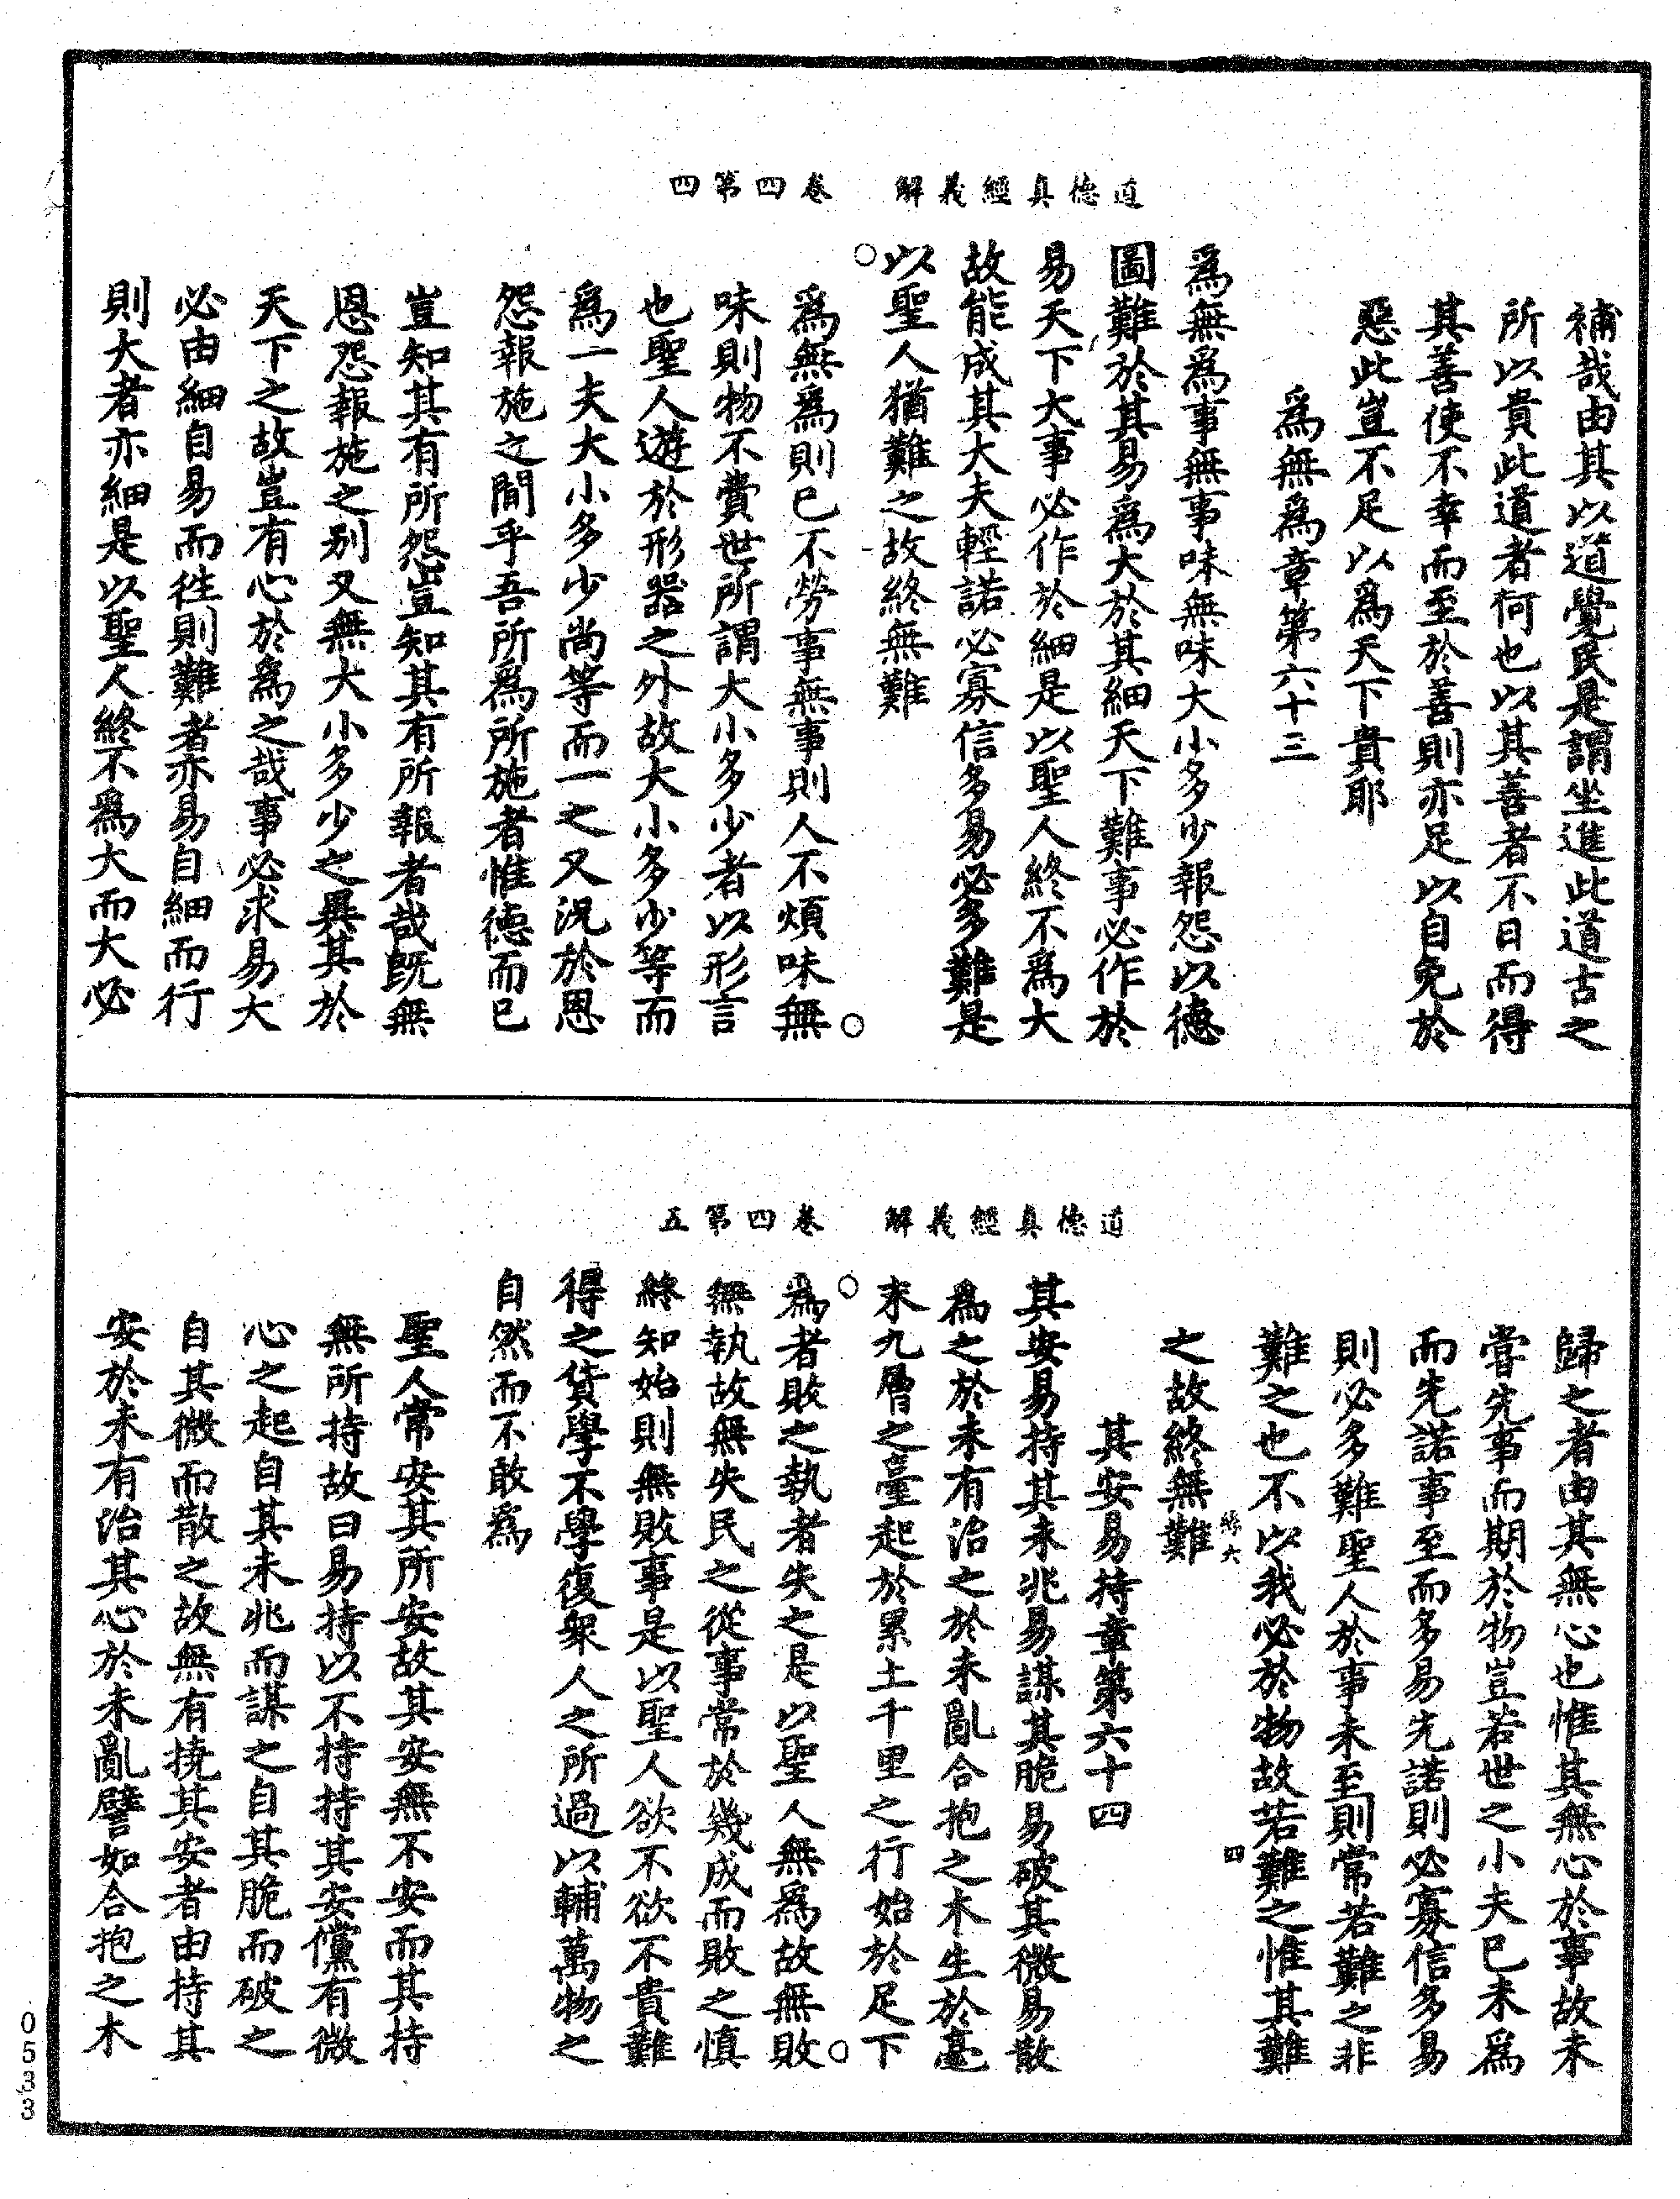 道德真經義解　卷四第四
補哉由其以道覺民是謂坐進此道古之
所以貴此道者何也以其善者不日而得
其善使不幸而至於善則亦足以自免於
惡此豈不足以為天下貴耶
為無為章第六十三
為無為事無事味無味大小多少報怨以德
圖難於其易為大於其細天下難事必作於
易天下大事必作於細是以聖人終不為大
故能成其大夫輕諾必寡信多易必多難是
以聖人猶難之故終無難
為無為則已不勞事無事則人不煩味無
味則物不費世所謂大小多少者以形言
也聖人遊於形器之外故大小多少等而
為一夫大小多少尚等而一之又況於恩
怨報施之間乎吾所為所施者惟德而已
豈知其有所怨豈知其有所報者哉既無
恩怨報施之別又無大小多少之異其於
天下之故豈有心於為之哉事必求易大
必由細自易而往則難者亦易自細而行
則大者亦細是以聖人終不為大而大必
道德真經義解　卷四第五
歸之者由其無心也惟其無心於事故未
嘗先事而期於物豈若世之小夫已未為
而先諾事至而多易先諾則必寡信多易
則必多難聖人於事未至則常若難之非
難之也不以我必於物故若難之惟其難
之故終無難
四
其安易持章第六十四
其安易持其未兆易謀其脆易破其微易散
為之於未有治之於未亂合抱之木生於毫
末九層之臺起於累土千里之行始於足下
為者敗之執者失之是以聖人無為故無敗
無執故無失民之從事常於幾成而敗之慎
終知始則無敗事是以聖人欲不欲不貴難
得之貨學不學復衆人之所過以輔萬物之
自然而不敢為
聖人常安其所安故其安無不安而其持
無所持故曰易持以不持持其安儻有微
心之起自其未兆而謀之自其脆而破之
自其微而散之故無有撓其安者由持其
安於未有治其心於未亂譬如合抱之木
0533